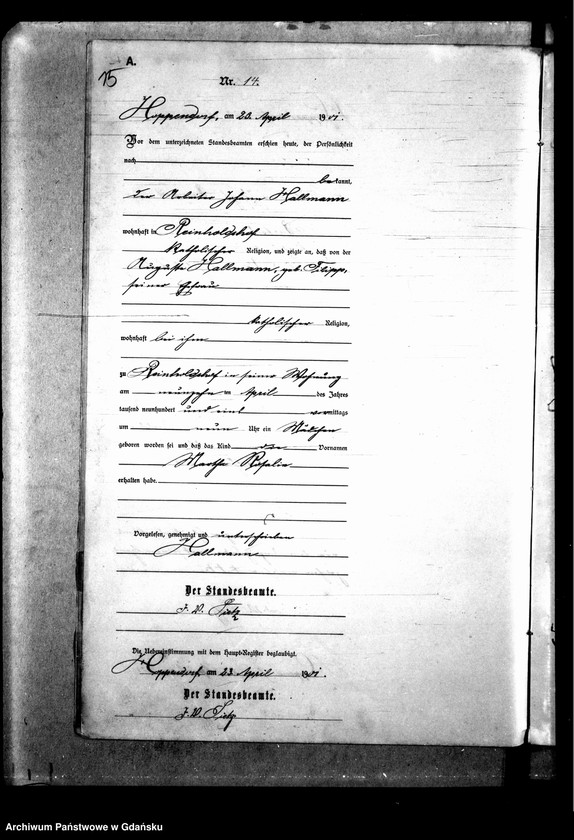 A.
15
Nr. 14.
Hoppendorf, am 23. April 1901.
Vor dem unterzeichneten Standesbeamten erschien heute, der Persönlichkeit
nach
bekannt,
der Arbeiter Johann Hallmann
wohnhaft in Reinholdshof
katholischer Religion, und zeigte an, daß von der
Auguste Hallmann, geb. Filipp,
seiner Ehefrau
katholischer Religion,
wohnhaft bei ihm
zu Reinholdshof in seiner Wohnung
am neunzehn ten April des Jahres
tausend neunhundert und eins vormittags
um neun Uhr ein Mädchen
geboren worden sei und daß das Kind die Vornamen
Martha Rosalie
erhalten habe.
Vorgelesen, genehmigt und unterschrieben
Hallmann
Der Standesbeamte.
J. V. Tietz
Die Uebereinstimmung mit dem Haupt-Register beglaubigt.
Hoppendorf, am 23. April 1901.
Der Standesbeamte.
J. V. Tietz
Archiwum Państwowe w Gdańsku